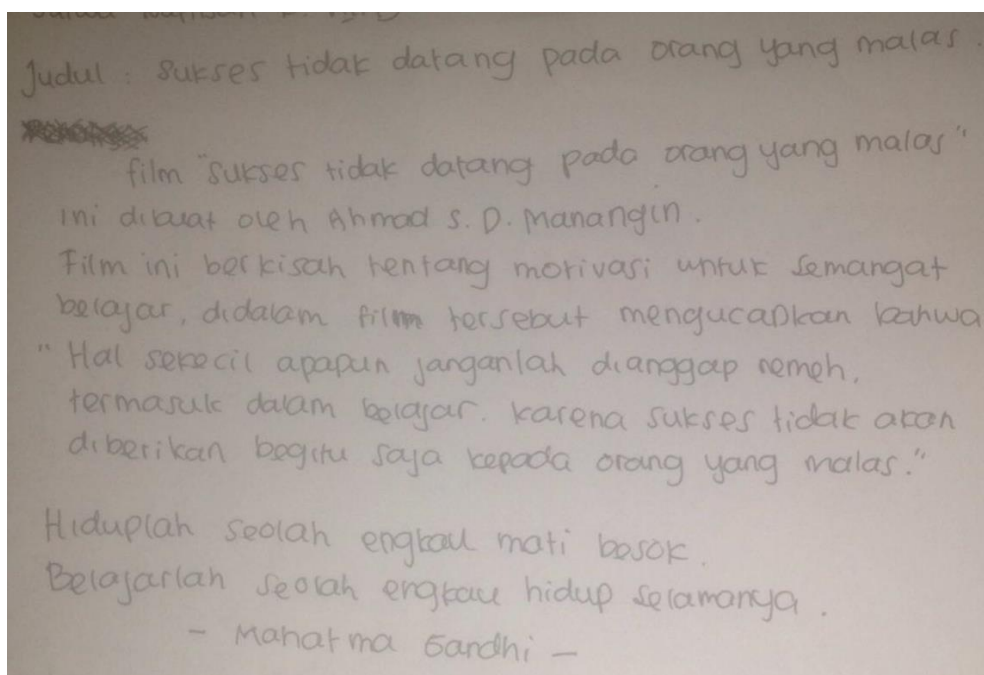 Judul : Sukses tidak datang pada orang yang malas.
film "Sukses tidak datang pada orang yang malas"
ini dibuat oleh Ahmad S. D. Manangin.
Film ini berkisah tentang motivasi untuk semangat
belajar, didalam film tersebut mengucapkan bahwa
" Hal sekecil apapun janganlah dianggap remeh,
termasuk dalam belajar. Karena sukses tidak akan
diberikan begitu saja kepada orang yang malas."
Hiduplah seolah engkau mati besok.
Belajarlah seolah engkau hidup selamanya.
- Mahatma Gandhi -